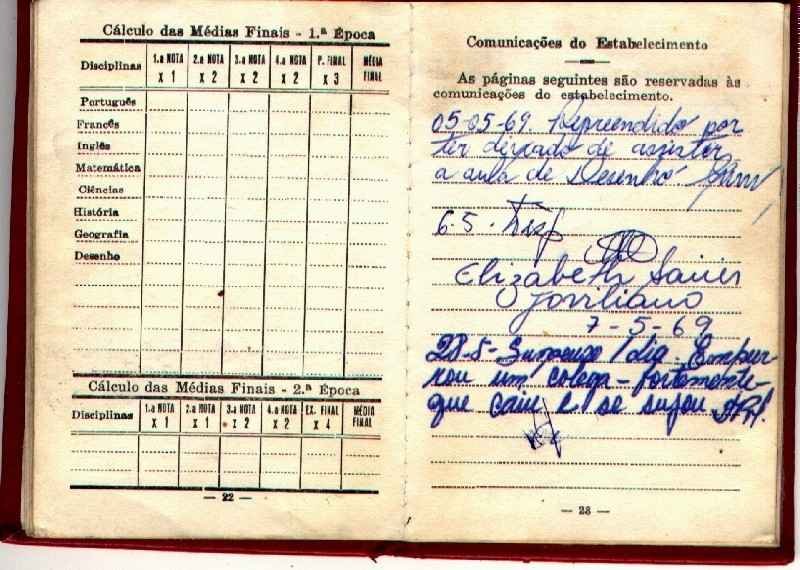 Cálculo das Médias Finais - 1.ª Época
Disciplinas 1.a NOTA x 1 2.a NOTA x 2 3.a NOTA x 2 4.a NOTA x 2 P. FINAL x 3 MÉDIA FINAL
Português
Francês
Inglês
Matemática
Ciências
História
Geografia
Desenho
Cálculo das Médias Finais - 2.ª Época
Disciplinas 1.a NOTA x 1 2.a NOTA x 1 3.a NOTA x 2 4.a NOTA x 2 EX. FINAL x 4 MÉDIA FINAL
— 22 —
Comunicações do Estabelecimento
As páginas seguintes são reservadas às
comunicações do estabelecimento.
05-05-69. Repreendido por
ter deixado de assistir
a aula de Desenho.
6-5-
Elizabeth
Joviliano
7-5-69
28-5- Suspenso 1 dia. Empur-
rou um colega - fortemente-
que caiu e se sujou.
— 23 —